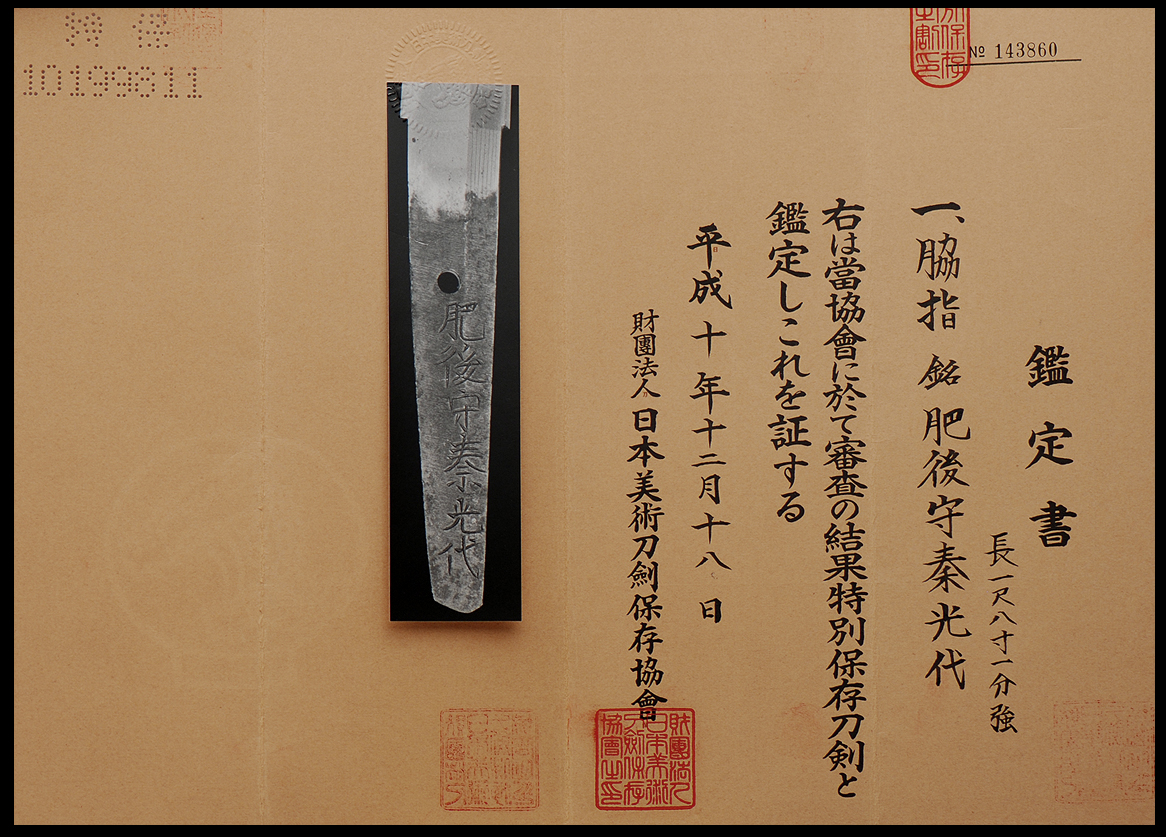 № 143860
鑑定書
長一尺八寸一分強
一、脇指 銘 肥後守秦光代
右は當協會に於て審査の結果特別保存刀剣と
鑑定しこれを証する
平成十年十二月十八日
財團法人日本美術刀劍保存協會
財團法人日本美術刀劍保存協會之印
肥後守秦光代
特保
10199811